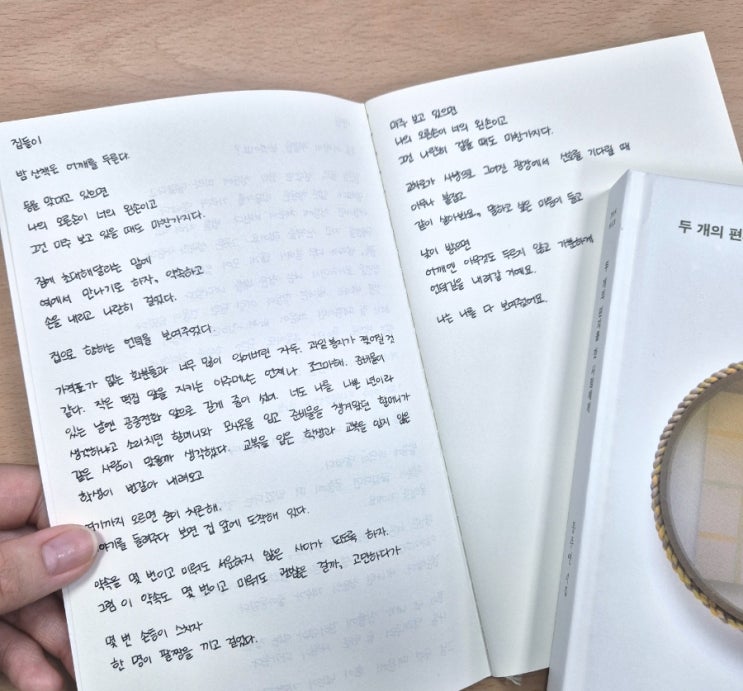 집들이
밤 산책은 어깨를 두른다.
등을 맞대고 있으면
나의 오른손이 너의 왼손이고
그건 마주 보고 있을 때도 마찬가지다.
집에 초대해달라는 말에
역에서 만나기로 하자, 약속하고
손을 내리고 나란히 걸었다.
집으로 향하는 언덕을 보여주었다.
가격표가 없는 화분들과 너무 많이 익어버린 자두. 과일 봉지가 찢어질 것
같다. 작은 떡집 앞을 지키는 아주머니는 언제나 조그마해. 준비물이
있는 날엔 공중전화 앞으로 길게 줄이 섰어. 너도 나를 나쁜 년이라
생각하냐고 소리치던 할머니와 모시옷을 입고 준비물을 챙겨왔던 할머니가
같은 사람이 맞을까 생각했다. 교복을 입은 학생과 교복을 입지 않은
학생이 번갈아 내려오고
여기까지 오르면 숨이 차곤해.
얘기를 들려주다 보면 집 앞에 도착해 있다.
약속을 몇 번이고 미뤄도 서운하지 않은 사이가 되도록 하자.
그럼 이 약속도 몇 번이고 미뤄도 괜찮은 걸까, 고민하다가
몇 번 손등이 스치자
한 명이 팔짱을 끼고 걸었다.
마주 보고 있으면
나의 오른손이 너의 왼손이고
그건 나란히 걸을 때도 마찬가지다.
교차로가 사방으로 그어진 광장에서 신호를 기다릴 때
아무나 붙잡고
같이 살아봐요, 말하고 싶은 마음이 들고
날이 밝으면
어깨엔 아무것도 두르지 않고 가뿐하게
언덕길을 내려갈 거예요.
나는 나를 다 보여주었어요.
두 개의 편